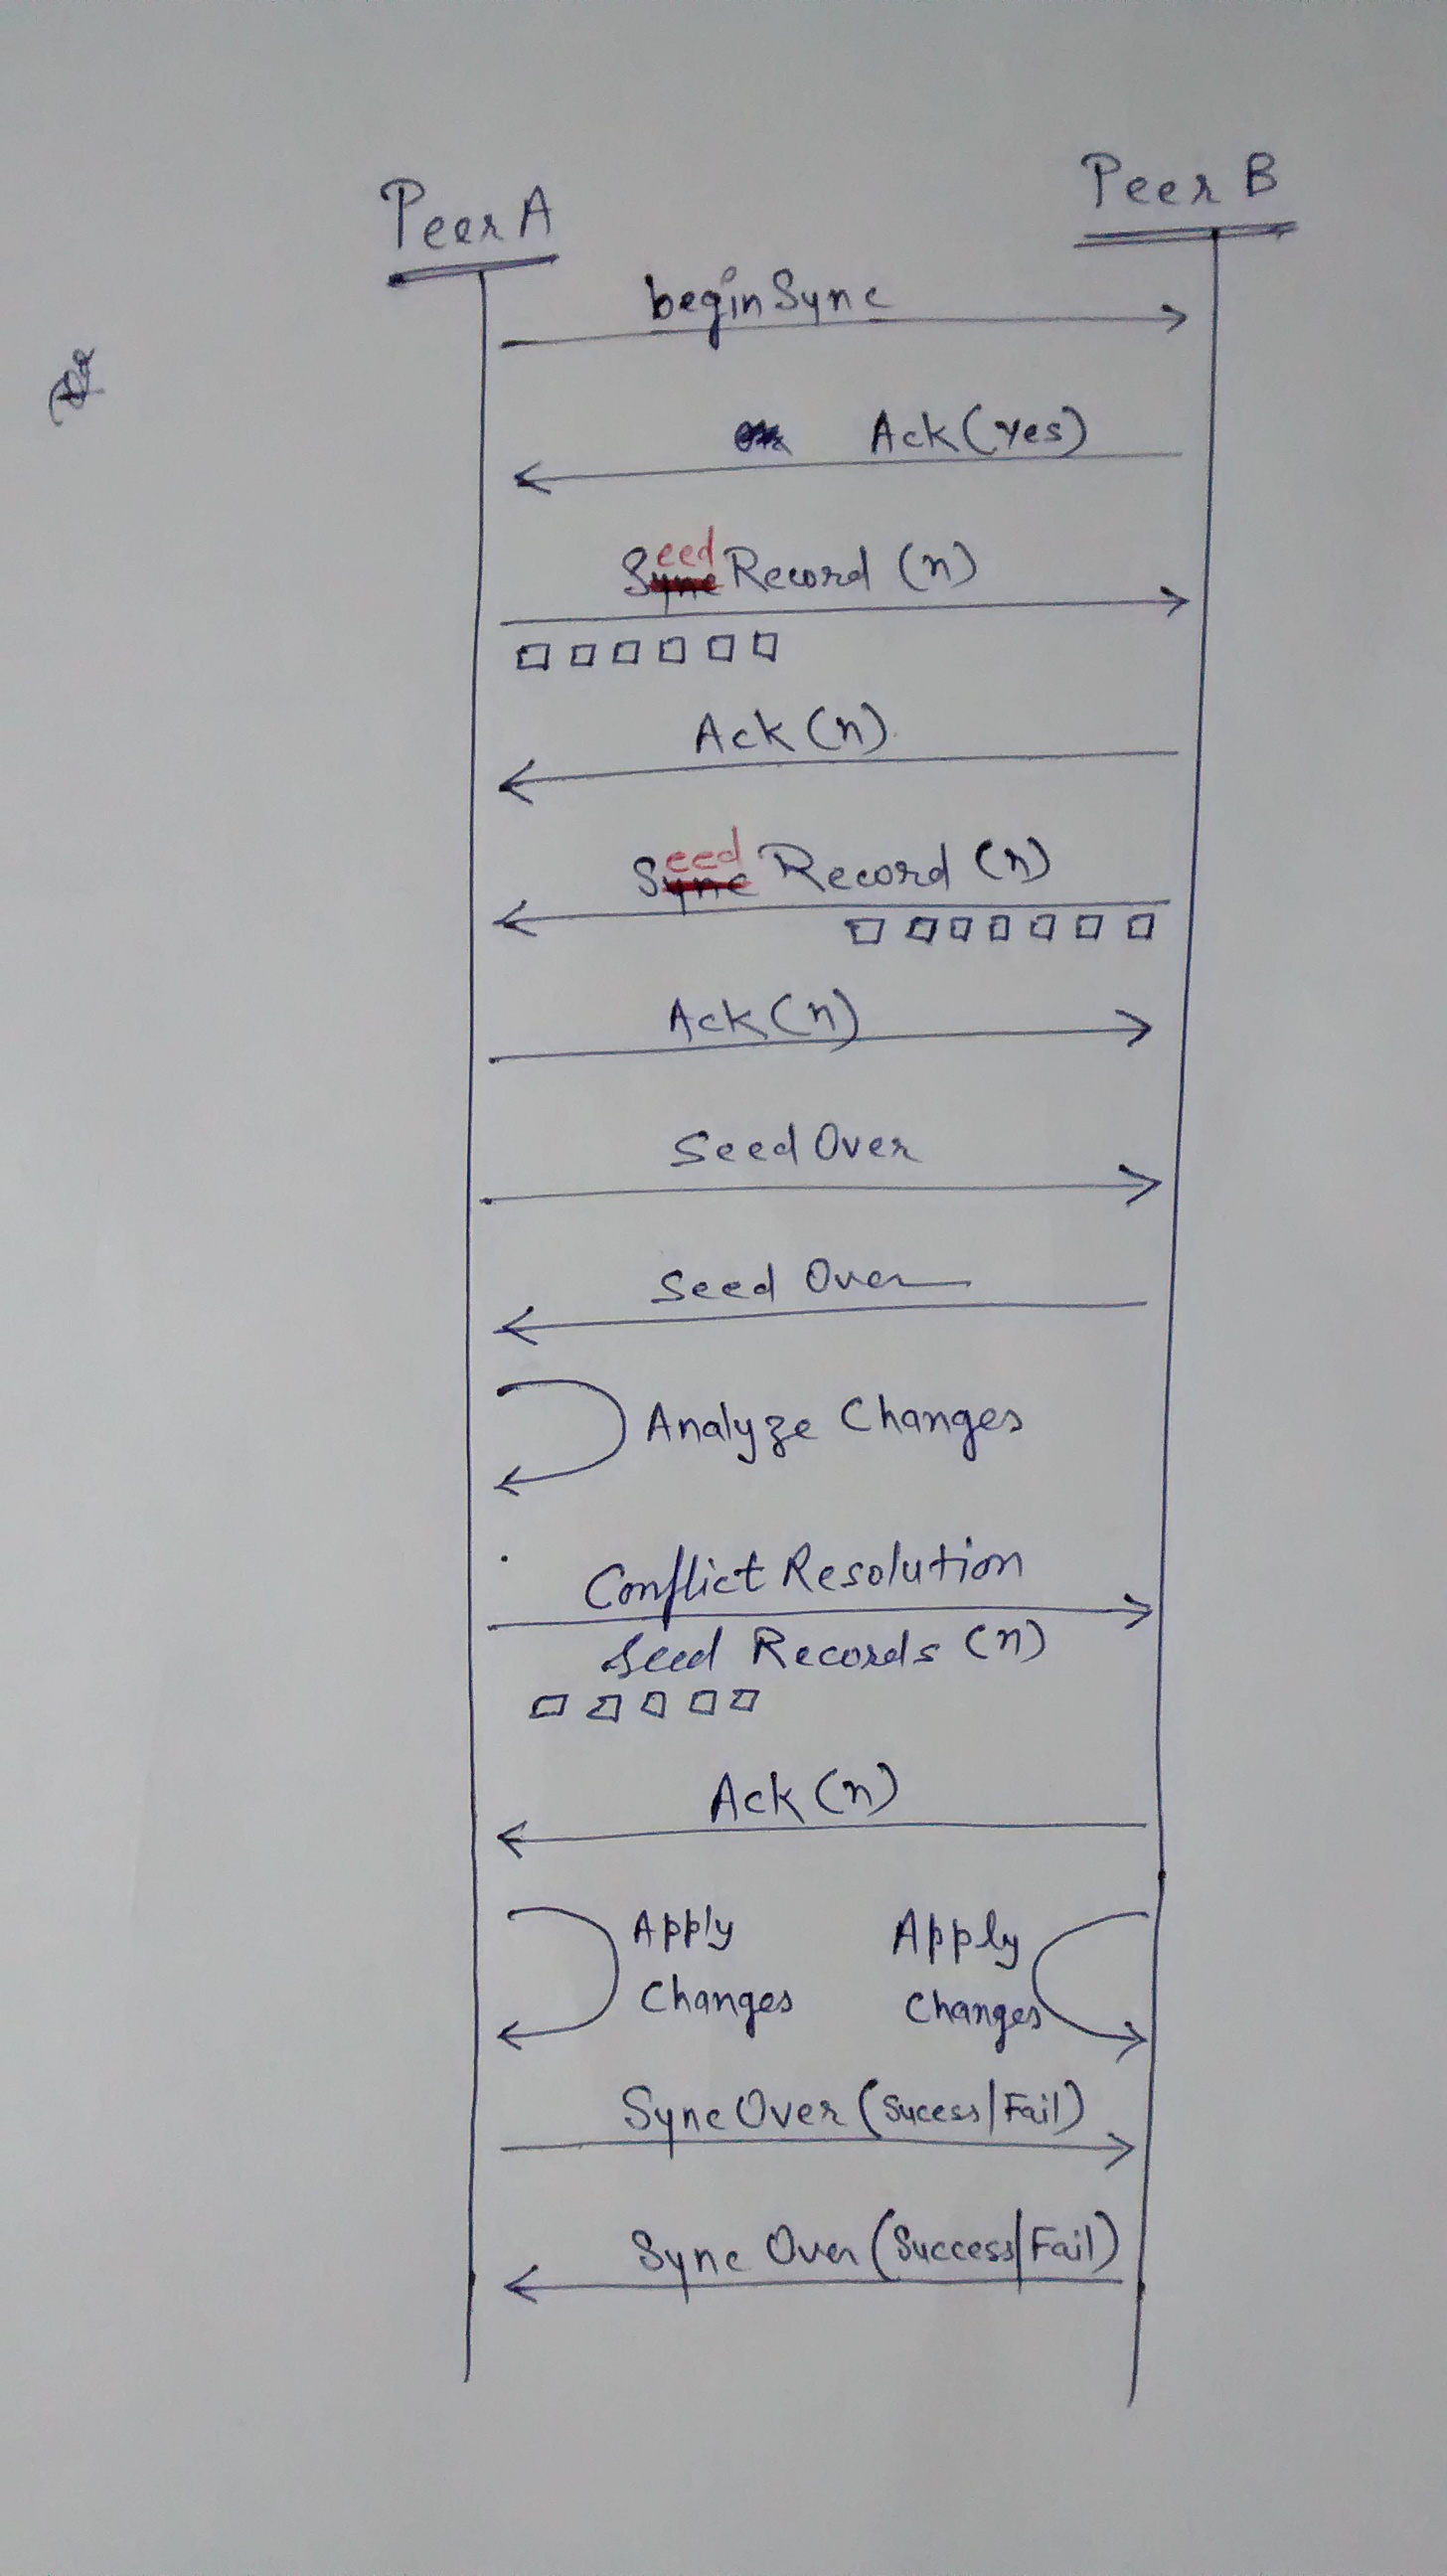 Peer A
Peer B
beginSync
Ack (Yes)
Seed Record (n)
Ack (n)
Seed Record (n)
Ack (n)
Seed Over
Seed Over
Analyze Changes
Conflict Resolution
Seed Records (n)
Ack (n)
Apply
Changes
Apply
Changes
Sync Over (Sucess/Fail)
Sync Over (Success/Fail)